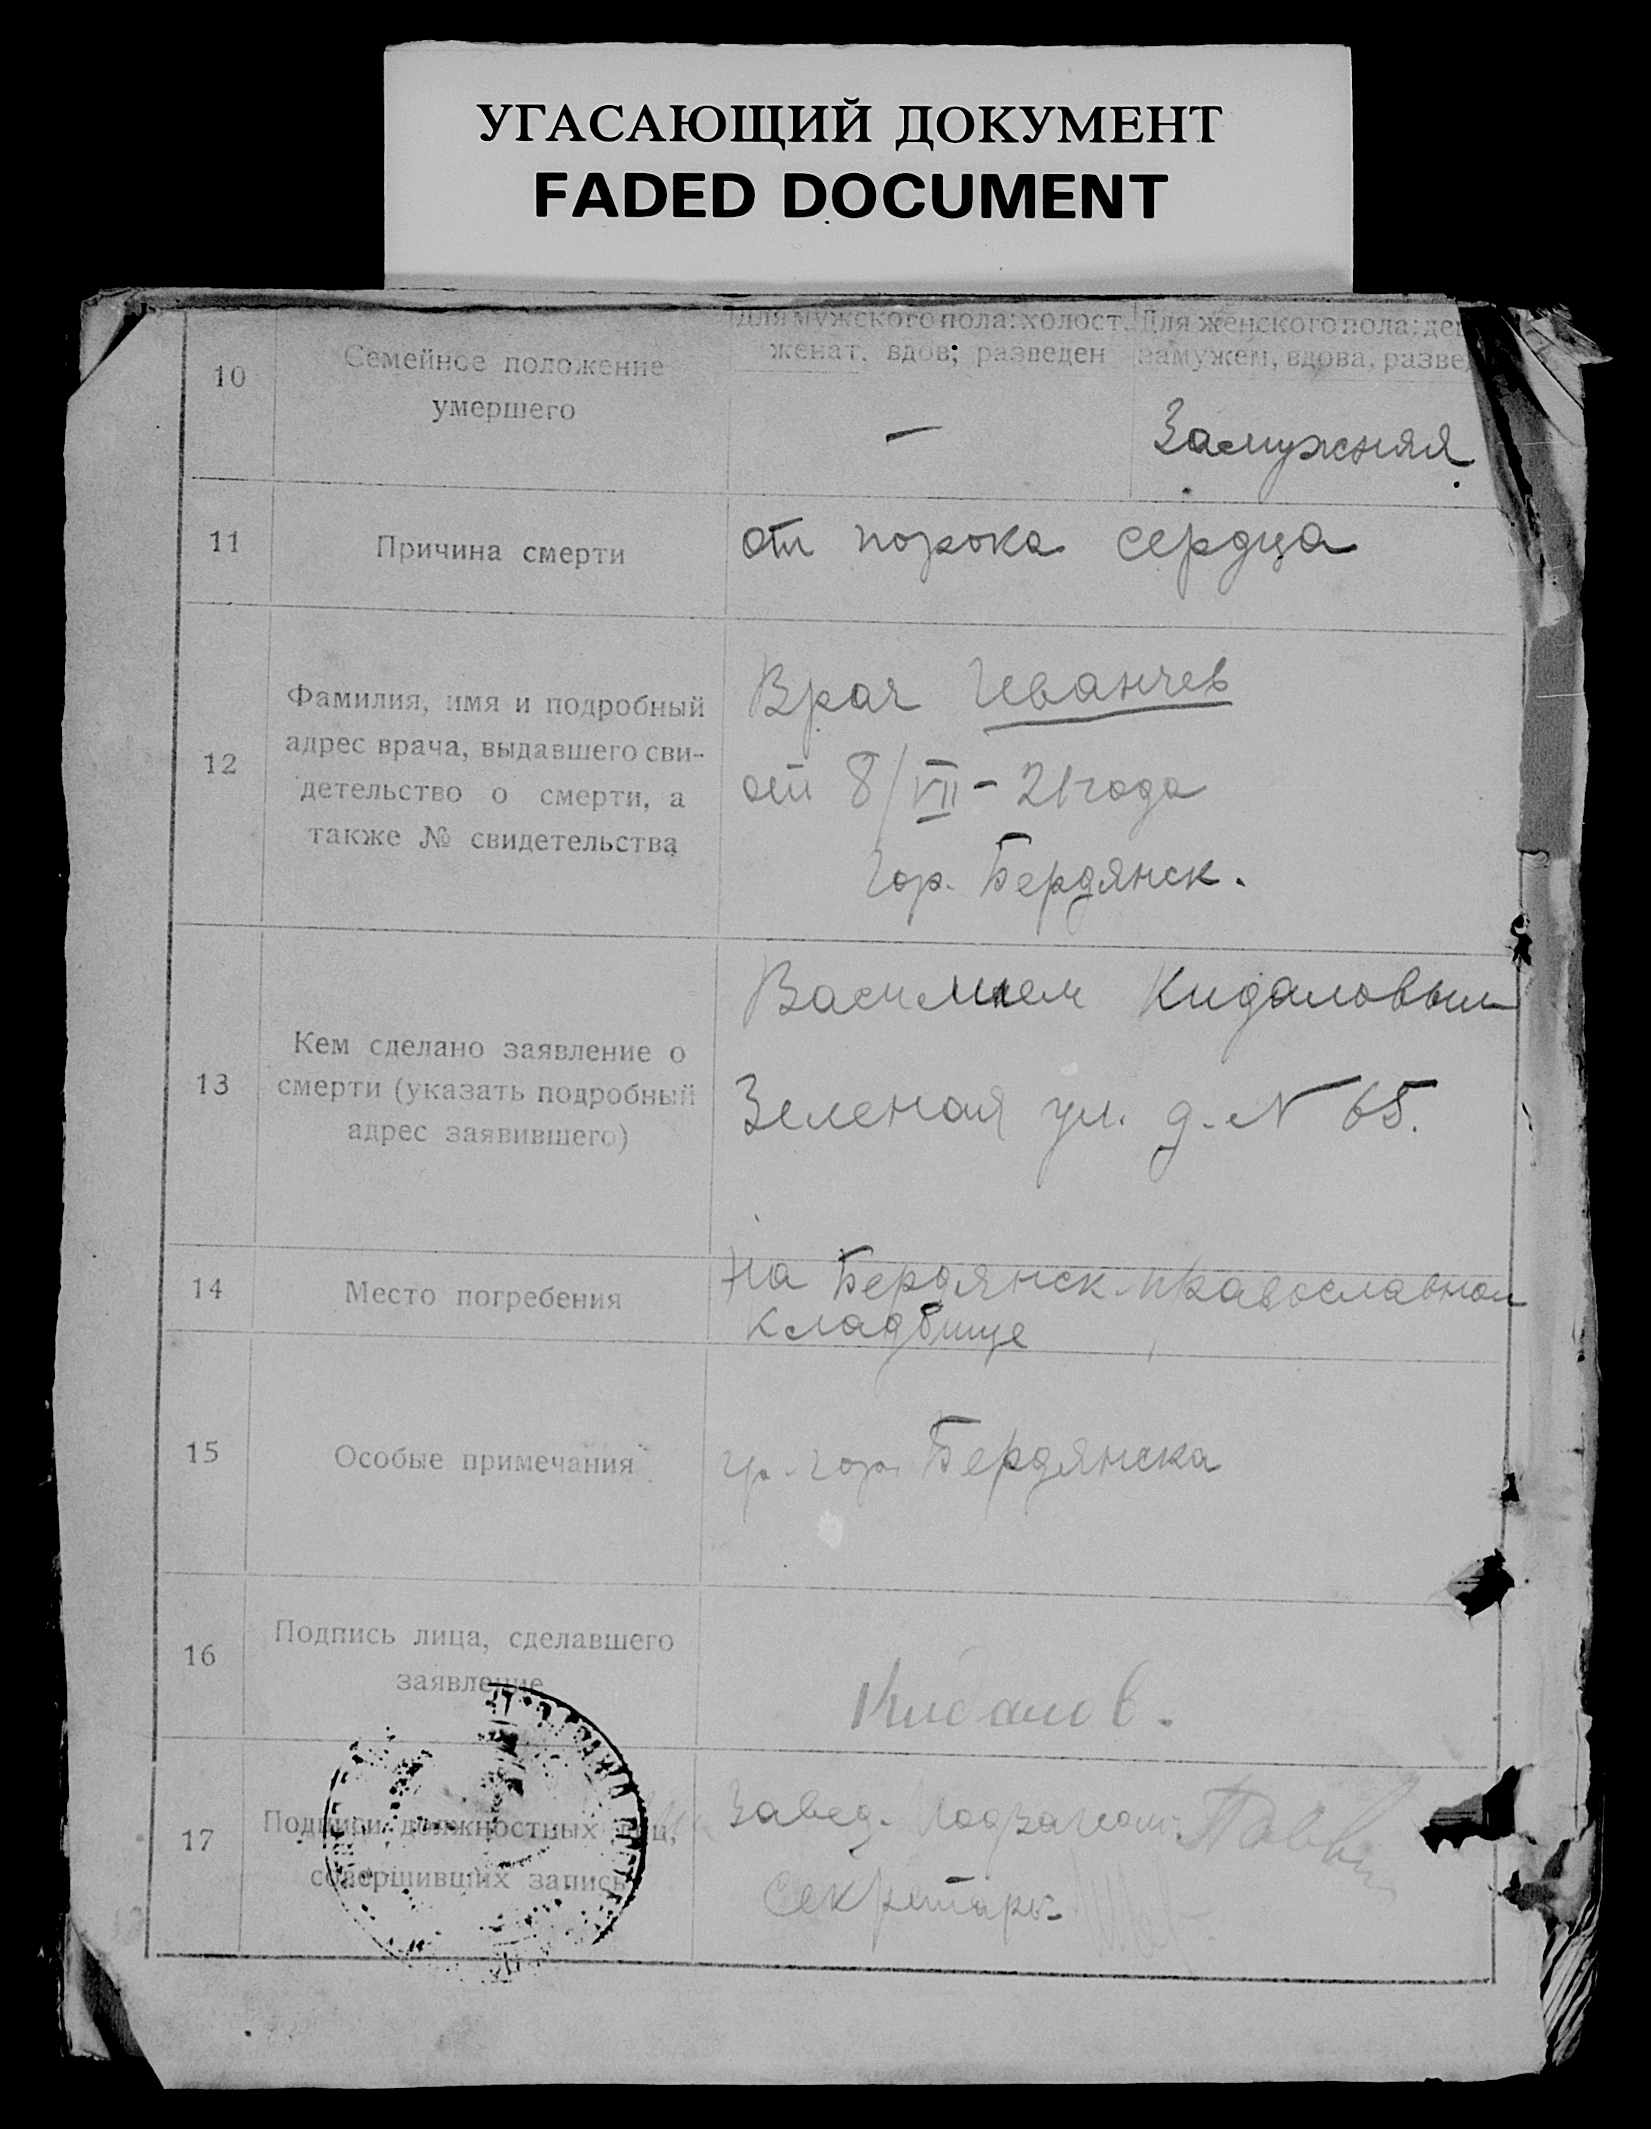 УГАСАЮЩИЙ ДОКУМЕНТ
FADED DOCUMENT
10
Семейное положение
умершего
Для мужского пола: холост.
женат, вдов; разведен
Для женского пола:
замужем, вдова,
—
Замужняя
11
Причина смерти
от порока сердца
12
Фамилия, имя и подробный
адрес врача, выдавшего сви-
детельство о смерти, а
также № свидетельства
Врач Иванчев
от 8/VII - 21 года
гор. Бердянск.
13
Кем сделано заявление о
смерти (указать подробный
адрес заявившего)
Василием Кидаловым
Зеленая ул. д. N 65.
14
Место погребения
На Бердянск. православном
кладбище
15
Особые примечания
гр. гор. Бердянска
16
Подпись лица, сделавшего
заявление
Кидалов.
17
Подписи должностных лиц,
совершивших запись
Завед.
Секретарь